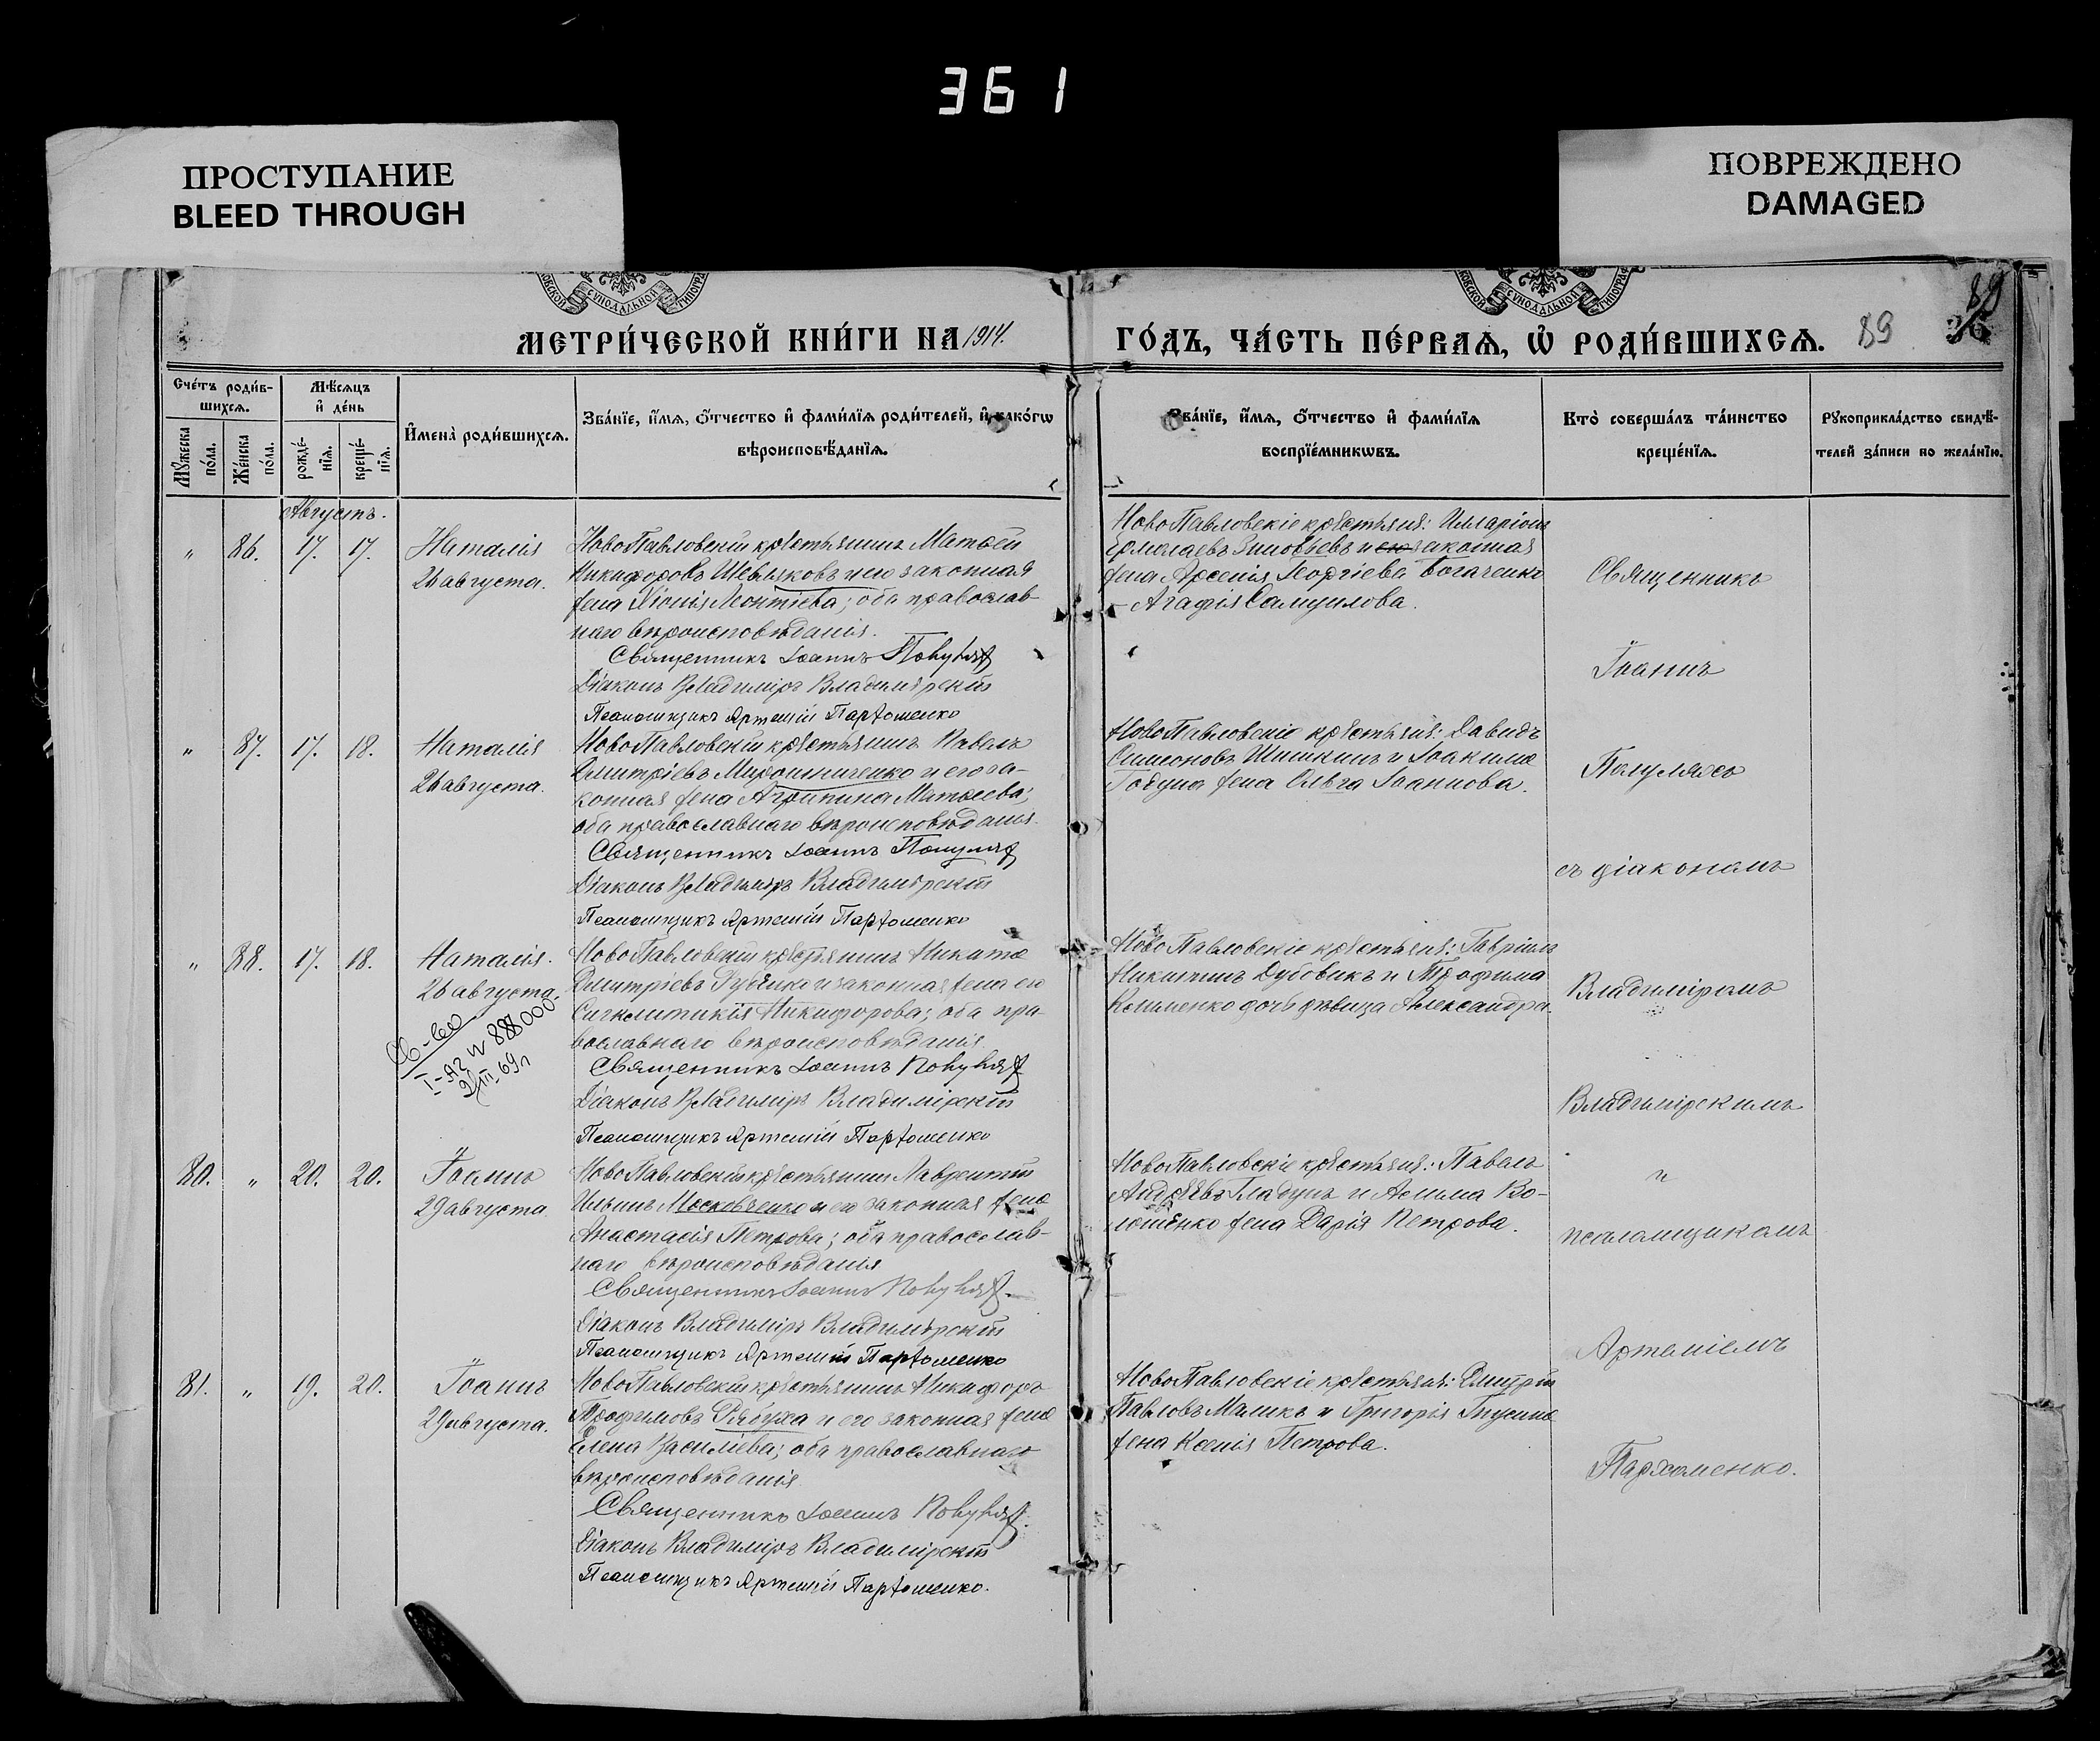 361
ПРОСТУПАНИЕ
BLEED THROUGH
ПОВРЕЖДЕНО
DAMAGED
СУНОДАЛЬНОЙ
СУНОДАЛЬНОЙ
МЕТРИ́ЧЕСКОЙ КНИ́ГИ НА 1914.
ГО́ДЪ, ЧА́СТЬ ПЕ́РВАѦ, Ѡ҆ РОДИ́ВШИХСѦ.
89
89
36
Сче́тъ роди́в-
шихсѧ.
Мѣ́сѧцъ
и҆ де́нь
Мꙋ́жеска по́ла.
Же́нска по́ла.
рожде́-
нїѧ.
креще́-
нїѧ.
И҆мена̀ роди́вшихсѧ.
Зва́нїе, и҆́мѧ, ѻ҆́тчество и҆ фами́лїѧ роди́телей, и҆ како́гѡ
вѣроисповѣ́данїѧ.
Зва́нїе, и҆́мѧ, ѻ҆́тчество и҆ фами́лїѧ
воспрїе́мникѡвъ.
Кто̀ соверша́лъ та́инство
креще́нїѧ.
Рꙋкоприкла́дство свидѣ́-
телей за́писи по жела́нїю.
Августъ.
" 86. 17. 17.
Наталія
26 августа.
НовоПавловскій крестьянинъ Матѳей
Никифоровъ Шевляковъ и его законная
жена Хіонія Леонтіева; оба православ-
наго вѣроисповѣданія.
Священникъ Іоаннъ Полуляхъ
Діаконъ Владиміръ Владимірскій
Псаломщикъ Артемій Пархоменко
НовоПавловскіе крестьяня: Илларіонъ
Ермолаевъ Зиновьевъ и его законная
жена Арсенія Георгіева Богаченко
– Агафія Самуилова.
" 87. 17. 18.
Наталія
26 августа.
НовоПавловскій крестьянинъ Павелъ
Дмитріевъ Мирошниченко и его за-
конная жена Агрипина Матѳеева;
оба православнаго вѣроисповѣданія.
Священникъ Іоаннъ Полуляхъ
Діаконъ Владиміръ Владимірскій
Псаломщикъ Артемій Пархоменко
НовоПавловскіе крестьяня: Давидъ
Симоновъ Шишкинъ и Іоакима
Годуна жена Ольга Іоаннова.
" 88. 17. 18.
Наталія.
26 августа.
НовоПавловскій крестьянинъ Никита
Дмитріевъ Губенко и законная жена его
Сигклитикія Никифорова; оба пра-
вославнаго вѣроисповѣданія.
Священникъ Іоаннъ Полуляхъ
Діаконъ Владиміръ Владимірскій
Псаломщикъ Артемій Пархоменко
Св-во
НовоПавловскіе крестьяня: Гавріилъ
Никитинъ Дубовикъ и Трофима
Клименко дочь дѣвица Александра.
80. " 20. 20.
Іоаннъ
29 августа
НовоПавловскій крестьянинъ Лаврентій
Ильинъ Московченко и его законная жена
Анастасія Петрова; оба православ-
наго вѣроисповѣданія
Священникъ Іоаннъ Полуляхъ
Діаконъ Владиміръ Владимірскій
Псаломщикъ Артемій Пархоменко
НовоПавловскіе крестьяня: Павелъ
Андреевъ Гладунъ и Асима Во-
лошенко жена Дарія Петрова.
81. " 19. 20.
Іоаннъ
29 августа.
НовоПавловскій крестьянинъ Никифоръ
Трофимовъ Рябуха и его законная жена
Елена Василіева; оба православнаго
вѣроисповѣданія.
Священникъ Іоаннъ Полуляхъ
Діаконъ Владиміръ Владимірскій
Псаломщикъ Артемій Пархоменко.
НовоПавловскіе крестьяня: Дмитрій
Павловъ Маликъ и Григорія
жена Ксенія Петрова.
Священникъ
Іоаннъ
Полуляхъ
съ діакономъ
Владиміромъ
Владимірскимъ
и
псаломщикомъ
Артеміемъ
Пархоменко.